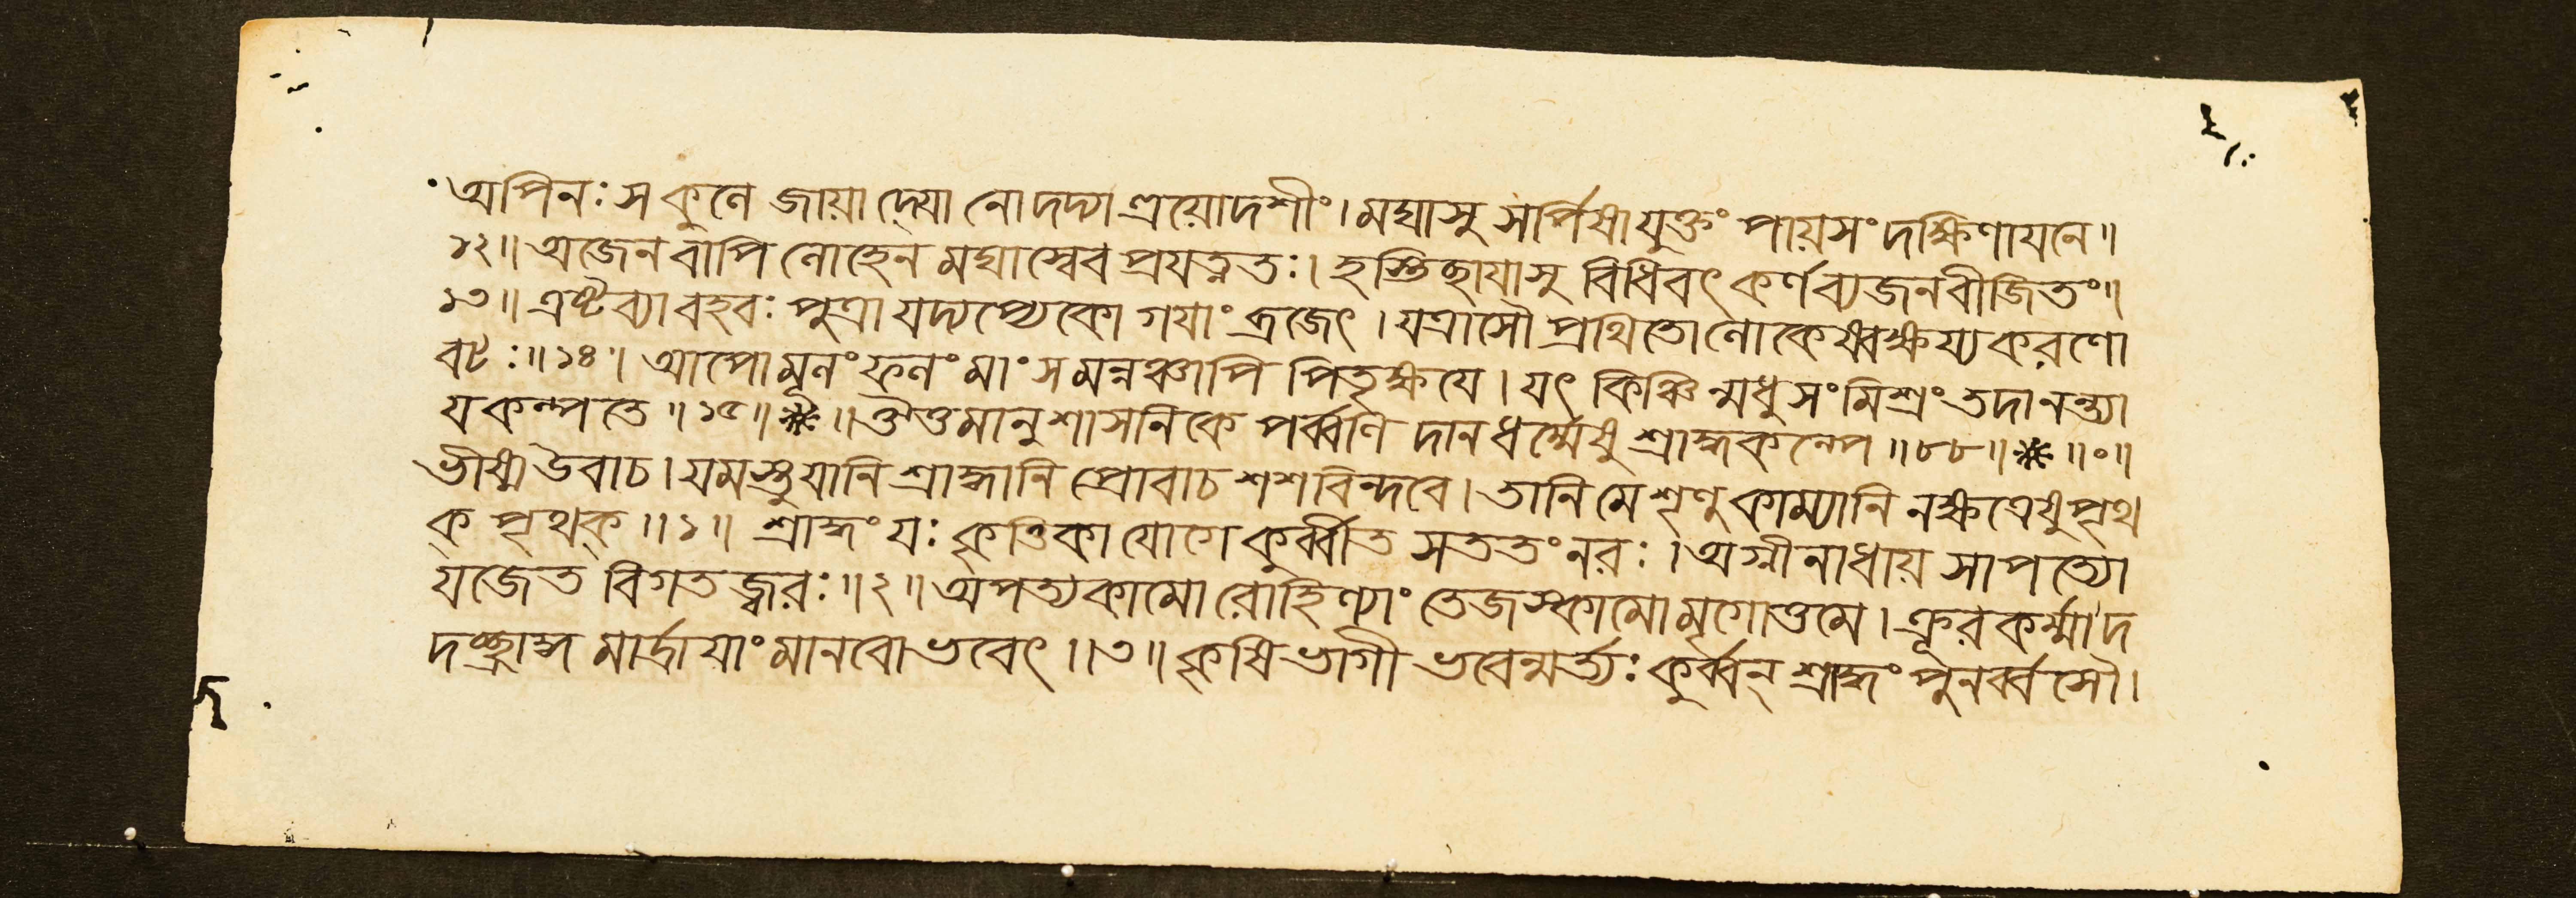 অপি নঃ স কুলে জায়াদ্যো নো দদ্যাত্রয়োদশীং। মঘাসু সর্পিষা যুক্তং পায়সং দক্ষিণায়নে॥
১২॥ অজেন বাপি লোহেন মঘাস্বেব প্রযত্নতঃ। হস্তিছায়াসু বিধিবৎ কর্ণব্যজনবীজিতং॥
১৩॥ এষ্টব্যা বহবঃ পুত্রা যদ্যপ্যেকো গয়াং ব্রজেৎ। যত্রাসৌ প্রথিতো লোকেষ্বক্ষয্যকরণো
বটঃ॥১৪॥ আপো মূলং ফলং মাংসমন্নঞ্চাপি পিতৃক্ষয়ে। যৎ কিঞ্চিন্মধুসংমিশ্রং তদানন্ত্যা
য কল্পতে॥১৫॥❋॥ ঔত্তমানুশাসনিকে পর্ব্বণি দানধর্ম্মেষু শ্রাদ্ধকল্পে॥৮৮॥❋॥०॥
ভীষ্ম উবাচ। যমস্তু যানি শ্রাদ্ধানি প্রোবাচ শশবিন্দবে। তানি মে শৃণু কাম্যানি নক্ষত্রেষু পৃথ
ক্ পৃথক্॥১॥ শ্রাদ্ধং যঃ কৃত্তিকাযোগে কুর্ব্বীত সততং নরঃ। অগ্নীনাধায় সাপত্যো
যজেত বিগতজ্বরঃ॥২॥ অপত্যকামো রোহিণ্যাং তেজস্কামো মৃগোত্তমে। ক্রূরকর্ম্মা দ
দচ্ছ্রাদ্ধমার্দ্রায়াং মানবো ভবেৎ॥৩॥ কৃষিভাগী ভবেন্মর্ত্যঃ কুর্ব্বন্ শ্রাদ্ধং পুনর্ব্বসৌ।